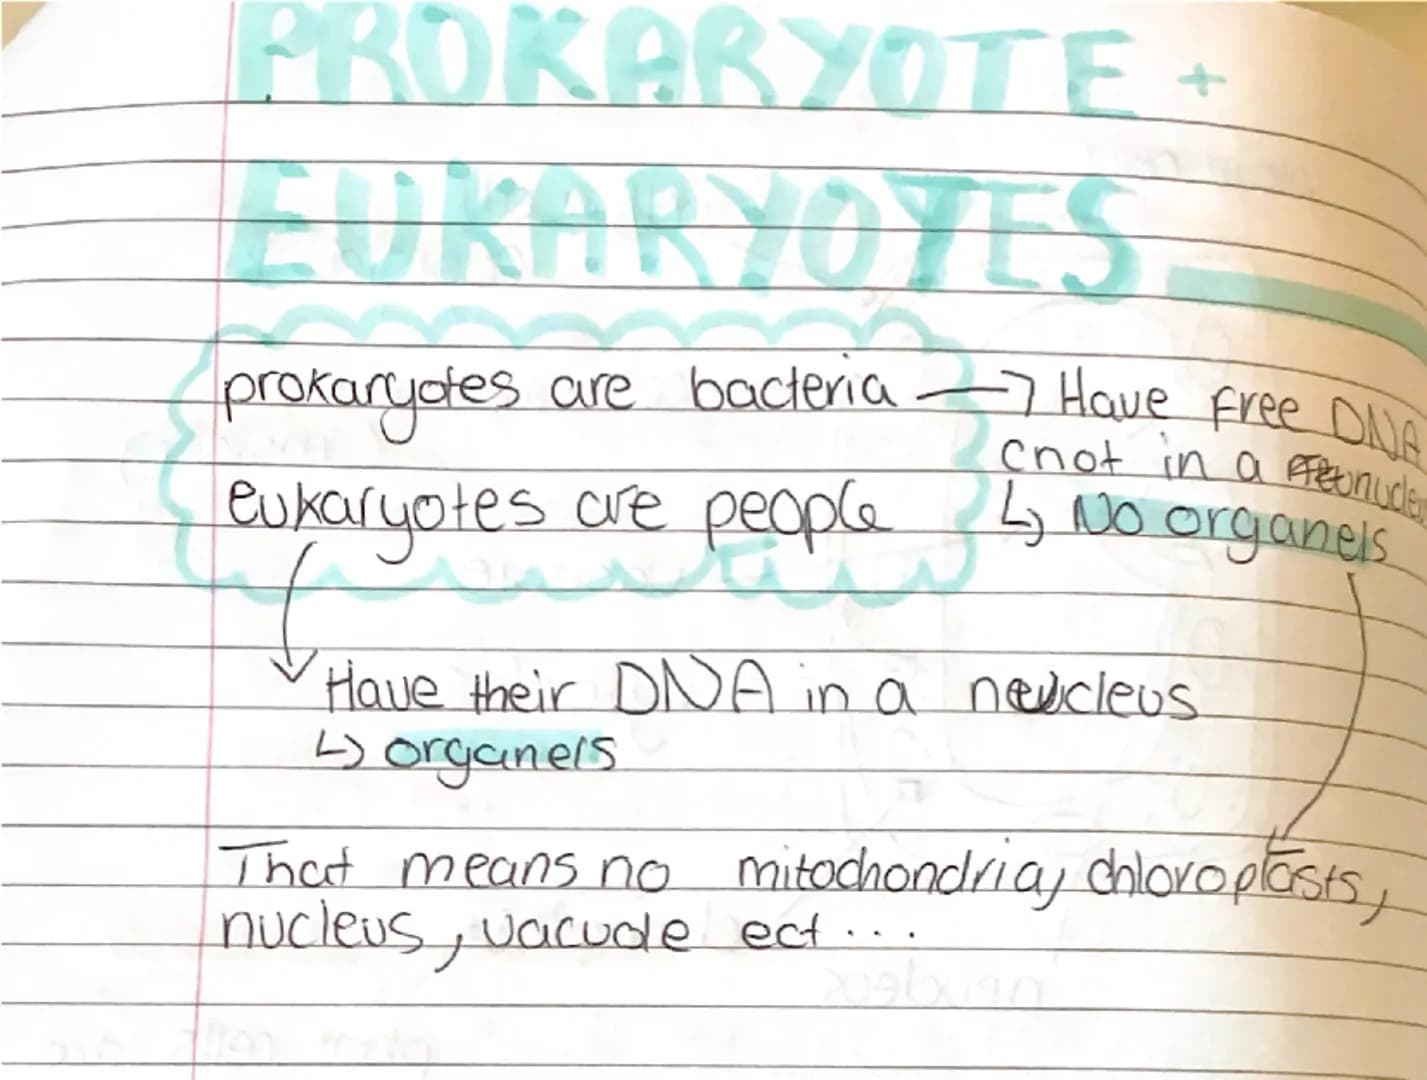 PROKARYOTE +
EUKARYOTES
prokaryotes are bacteria → Have free DNA
cnot in a
eukaryotes are people
↳ No organels
Have their DNA in a neucleus
↳ organels
That means no mitochondria, chloroplasts,
nucleus, vacuole ect ...